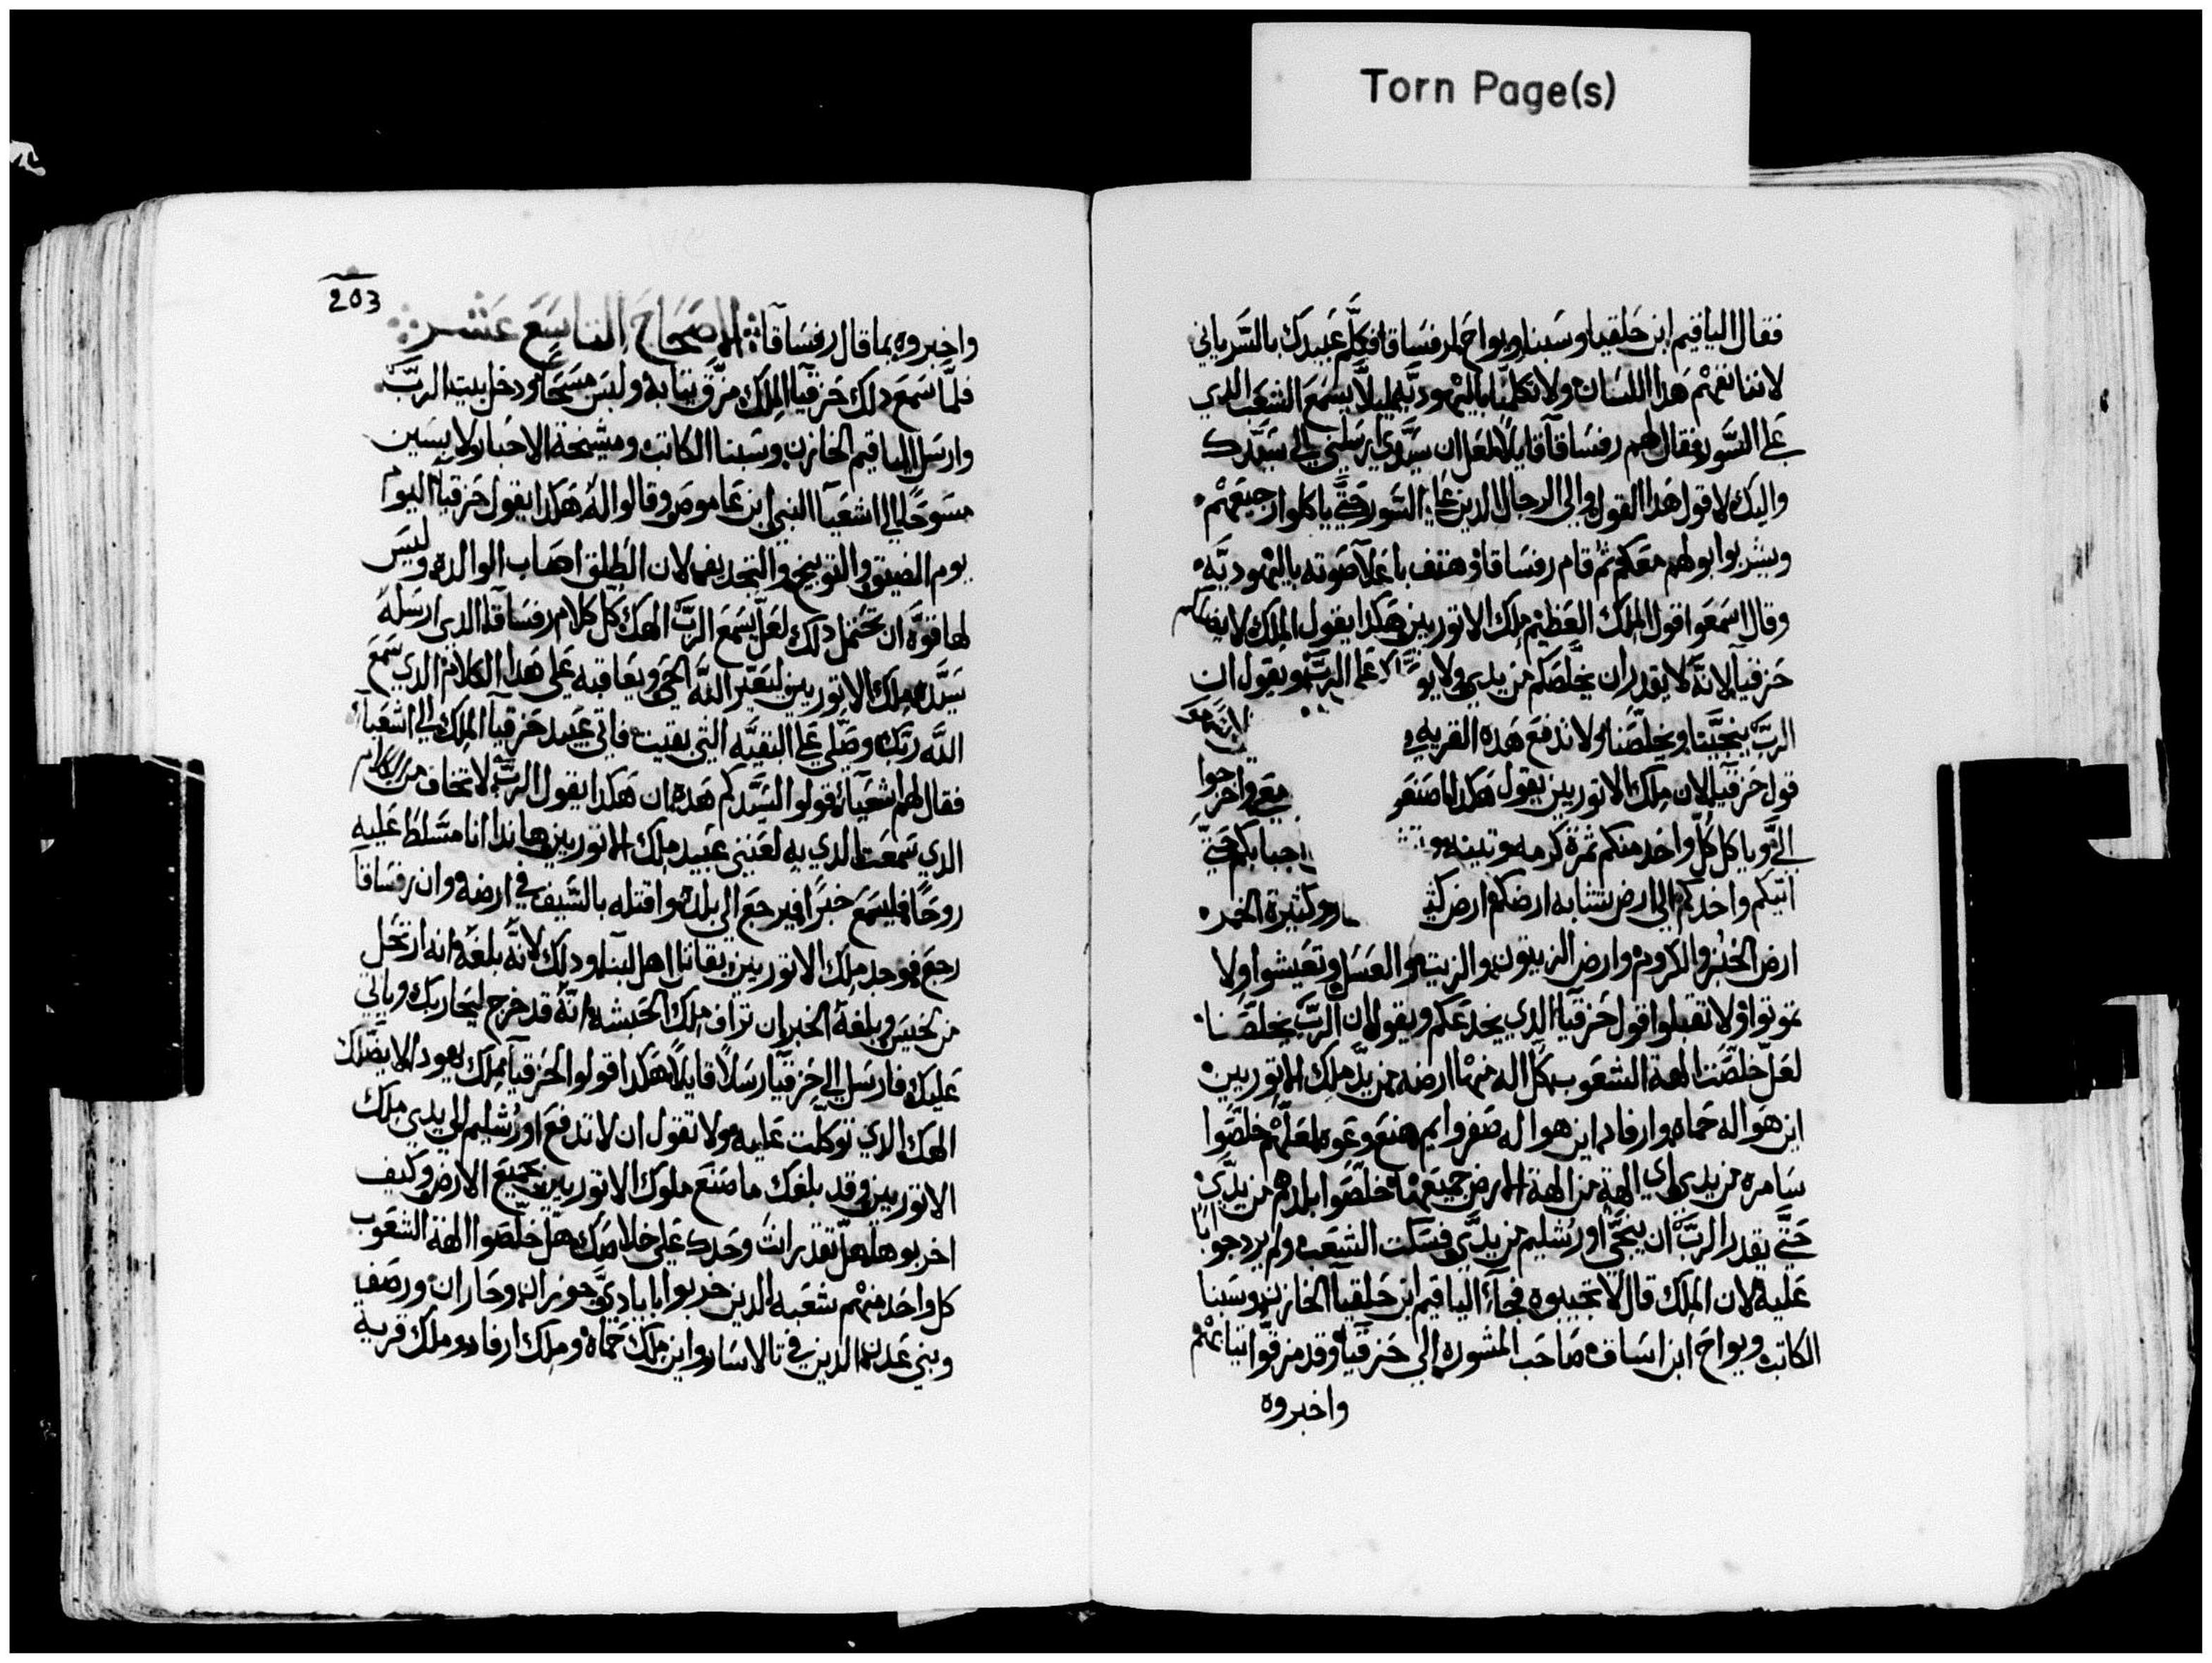 Torn Page(s)
فقال الياقيم ابن حلقيا وسبنا ويواح لرفساقا فكلم عبيدك بالسرياني
لاننا نفهم هدا اللسان ولا تكلمنا باليهوديه ليلا يسمع الشعب الدي
على السور فقال لهم رفساقا قايلا لعل ان سيدي ارسلني الى سيدك
واليك لاقول هدا القول والى الرجال الدين على السور حتى ياكلوا رجيعهم
ويشربوا بولهم معكم ثم قام رفساقا وهتف باعلا صوته باليهوديه
وقال اسمعوا قول الملك العظيم ملك الاتوريين هكدا يقول الملك لا يضلكم
حزقيا لانه لا يقدر ان يخلصكم من يدي ولا على الرب ويقول ان
الرب ينجينا ويخلصنا ولا تدفع هده القريه
قول حزقيا لان ملك الاتوريين يقول هكدا اصنعو معي واخرجوا
الي وياكل كل واحد منكم ثمرة كرمه وتينه جبابكم حتى
اتيكم واخدكم الى ارض تشابه ارضكم ارض وكثيرة الخمر
ارض الخبز والكروم وارض الزيتون والزيت والعسل وتعيشوا ولا
تموتوا ولا تقبلوا قول حزقيا الدي يخدعكم ويقول ان الرب يخلصنا
لعل خلصت الهة الشعوب كل اله منها ارضه من يد ملك الاتوريين
اين هو اله حماه وارفاد اين هو اله صفروايم هنع وعوه لعلهم خلصوا
سامره من يدي اي الهة من الهة الارض جميعها خلصوا بلدهم من يدي
حتى يقدر الرب ان ينجي اورشليم من يدي فسكت الشعب ولم يرد جوابا
عليه لان الملك قال لا تجيبوه فجاء الياقيم ابن حلقيا الخازن وسبنا
الكاتب ويواح ابن اساف صاحب المشوره الى حزقيا وقد مزقوا ثيابهم
واخبروه
203
واخبروه بما قال رفساقا الاصحاح التاسع عشر
فلما سمع دلك حزقيا الملك مزق ثيابه ولبس مسحا ودخل بيت الرب
وارسل الياقيم الخازن وسبنا الكاتب ومشيخة الاحبار لابسين
مسوحا الى اشعيا النبي ابن عاموص وقالوا له هكدا يقول حزقيا اليوم
يوم الضيق والتوبيخ والتجديف لان الطلق اصاب الوالده وليس
لها قوه ان تحتمل دلك لعل يسمع الرب الهك كل كلام رفساقا الدي ارسله
سيده ملك الاتوريين ليعير الله الحي ويعاقبه على هدا الكلام الدي سمع
الله ربك وصلي على البقيه التي بقيت فاتى عبيد حزقيا الملك الى اشعيا
فقال لهم اشعيا قولوا لسيدكم هده ان هكدا يقول الرب لا تخاف من الكلام
الدي سمعت الدي به لعنني عبيد ملك الاتوريين هاندا انا مسلط عليه
روحا فليسمع خبرا فيرجع الى بلده واقتله بالسيف في ارضه وان رفساقا
رجع فوجد ملك الاتوريين يقاتل اهل لبنا ودلك لانه بلغه انه ارتحل
من لخيس وبلغه الخبر ان تراق ملك الحبشه انه قد خرج ليحاربك وياتي
عليك فارسل الى حزقيا رسلا قايلا هكدا قولوا لحزقيا ملك يهودا لا يضلك
الهك الدي توكلت عليه ولا تقول ان لا تدفع اورشليم الى يدي ملك
الاتوريين وقد بلغك ما صنع ملوك الاتوريين بجميع الارض وكيف
اخربوها هل تقدر انت وحدك على خلاصك هل خلصوا الهة الشعوب
كل واحد منهم شعبه الدين خربوا ابايادي جوزان وحاران ورصف
وبني عدن الدين في تالاسار واين ملك حماة وملك ارفاد وملك قرية